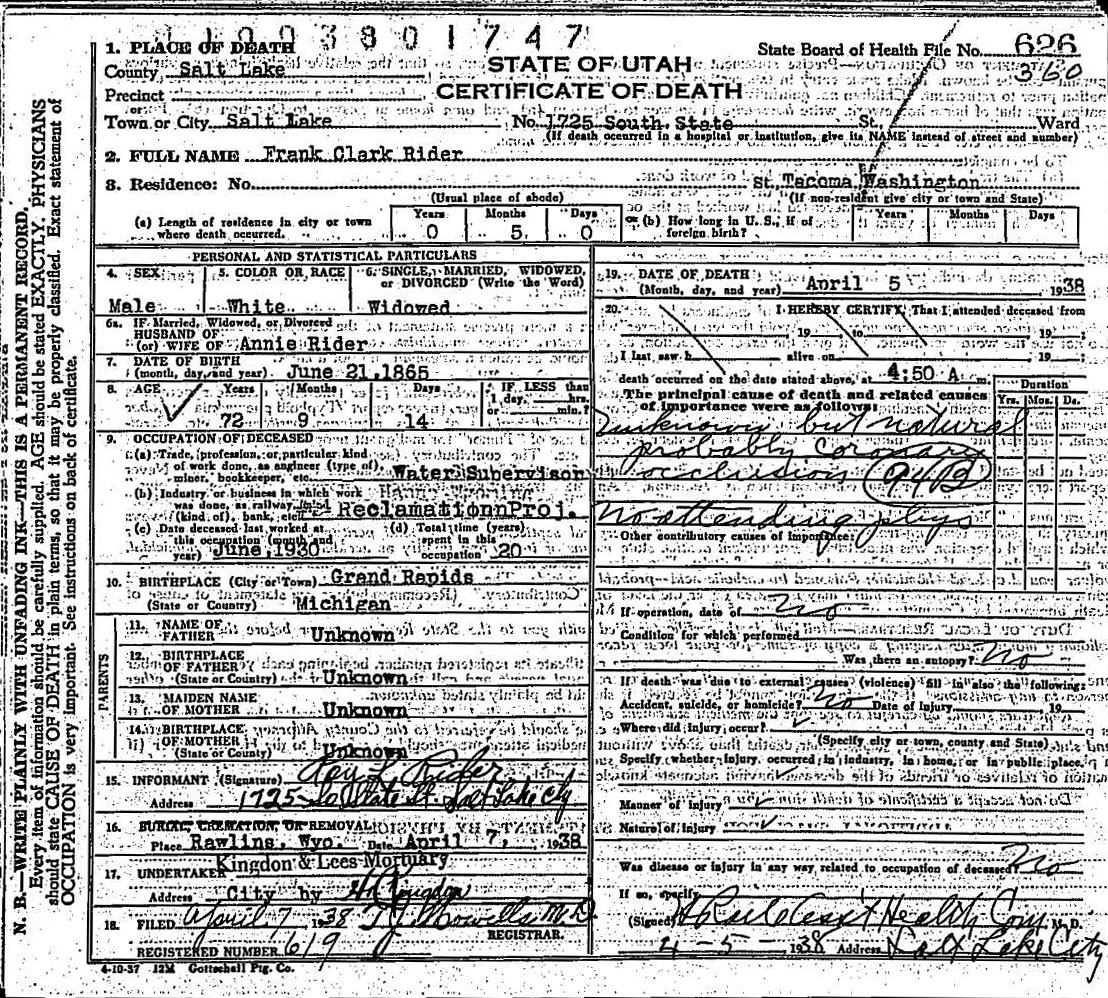 1003801747
1. PLACE OF DEATH
State Board of Health File No. 626
County Salt Lake
STATE OF UTAH
360
Precinct
CERTIFICATE OF DEATH
Town or City Salt Lake No. 1725 South State St. Ward
(If death occurred in a hospital or institution, give its NAME instead of street and number)
2. FULL NAME Frank Clark Rider
3. Residence: No. St. Tacoma Washington
(Usual place of abode) (If non-resident give city or town and State)
(a) Length of residence in city or town where death occurred. Years 0 Months 5 Days 0
(b) How long in U. S., if of foreign birth? Years Months Days
PERSONAL AND STATISTICAL PARTICULARS
4. SEX Male
5. COLOR OR RACE White
6. SINGLE, MARRIED, WIDOWED, or DIVORCED (Write the Word) Widowed
6a. If Married, Widowed, or Divorced
HUSBAND OF
(or) WIFE OF Annie Rider
7. DATE OF BIRTH
(month, day, and year) June 21, 1865
8. AGE Years 72 Months 9 Days 14 IF LESS than 1 day, hrs. or min.?
9. OCCUPATION OF DECEASED
(a) Trade, profession, or particular kind
of work done, as engineer (type of),
miner, bookkeeper, etc. Water Supervisor
(b) Industry or business in which work
was done, as railway,
(kind of), bank, etc. Reclamationn Proj.
(c) Date deceased last worked at
this occupation (month and
year) June, 1930
(d) Total time (years)
spent in this
occupation 20
10. BIRTHPLACE (City or Town) Grand Rapids
(State or Country) Michigan
PARENTS
11. NAME OF
FATHER Unknown
12. BIRTHPLACE
OF FATHER
(State or Country) Unknown
13. MAIDEN NAME
OF MOTHER Unknown
14. BIRTHPLACE
OF MOTHER
(State or Country) Unknown
15. INFORMANT (Signature) Roy L. Rider
Address 1725 So State St. Salt Lake City
16. BURIAL, CREMATION, OR REMOVAL
Place Rawlins, Wyo. Date April 7, 1938
17. UNDERTAKER Kingdon & Lees Mortuary
Address City by
18. FILED April 7 1938 M.D.
REGISTRAR.
REGISTERED NUMBER 619
4-10-37 12M Gottschall Ptg. Co.
19. DATE OF DEATH
(Month, day, and year) April 5 1938
20. I HEREBY CERTIFY, That I attended deceased from
19 to 19
I last saw h alive on 19
death occurred on the date stated above, at 4:50 A m.
The principal cause of death and related causes
of importance were as follows:
Duration
Yrs. Mos. Ds.
Unknown but natural
probably coronary
occlusion (94B)
No attending phys
Other contributory causes of importance:
If operation, date of No
Condition for which performed
Was there an autopsy? No
If death was due to external causes (violence) fill in also the following:
Accident, suicide, or homicide? No Date of Injury 19
Where did injury occur?
(Specify city or town, county and State)
Specify whether injury occurred in industry, in home, or in public place,
Manner of injury
Nature of injury
Was disease or injury in any way related to occupation of deceased? No
If so, specify
(Signed) Asst Health Com M. D.
4-5-1938 Address Salt Lake City
N. B.—WRITE PLAINLY WITH UNFADING INK—THIS IS A PERMANENT RECORD.
Every item of information should be carefully supplied. AGE should be stated EXACTLY. PHYSICIANS
should state CAUSE OF DEATH in plain terms, so that it may be properly classified. Exact statement of
OCCUPATION is very important. See instructions on back of certificate.